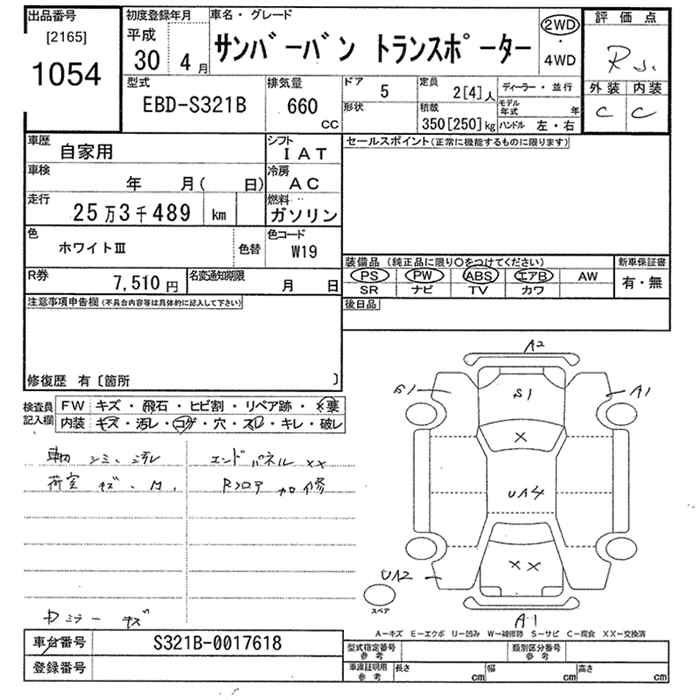 出品番号 初度登録年月 車名・グレード 評価点
[2165] 平成 2WD
1054 30年4月 サンバーバン トランスポーター ・ R
4WD
型式 排気量 ドア 5 定員 2[4]人 ディーラー・並行 外装 内装
EBD-S321B 660 cc 形状 積載 350[250]kg モデル年式 年 C C
ハンドル 左・右
車歴 自家用 シフト IAT セールスポイント(正常に機能するものに限ります)
車検 年 月( 日) 冷房 AC
走行 25万3千489 km 燃料 ガソリン
色 ホワイトⅢ 色替 色コード W19
装備品(純正品に限り○をつけてください) 新車保証書
R券 7,510円 名変通知期限 月 日 PS PW ABS エアB AW 有・無
SR ナビ TV カワ
注意事項申告欄(不具合内容等は具体的に記入して下さい) 後日品
修復歴 有〔箇所 〕
検査員記入欄 FW キズ・飛石・ヒビ割・リペア跡・×要
内装 キズ・汚レ・コゲ・穴・スレ・キレ・破レ
シミ、汚レ エンドパネル ××
荷室 キズ Rフロア 加修
ミラー キズ
A2
S1 S1 A1
×
UA4
××
UA2
スペア
A1
A-キズ E-エクボ U-凹み W-補修跡 S-サビ C-腐食 XX-交換済
車台番号 S321B-0017618 型式指定番号 参考 類別区分番号 参考
登録番号 車庫証明用 参考 長さ cm 幅 cm 高さ cm